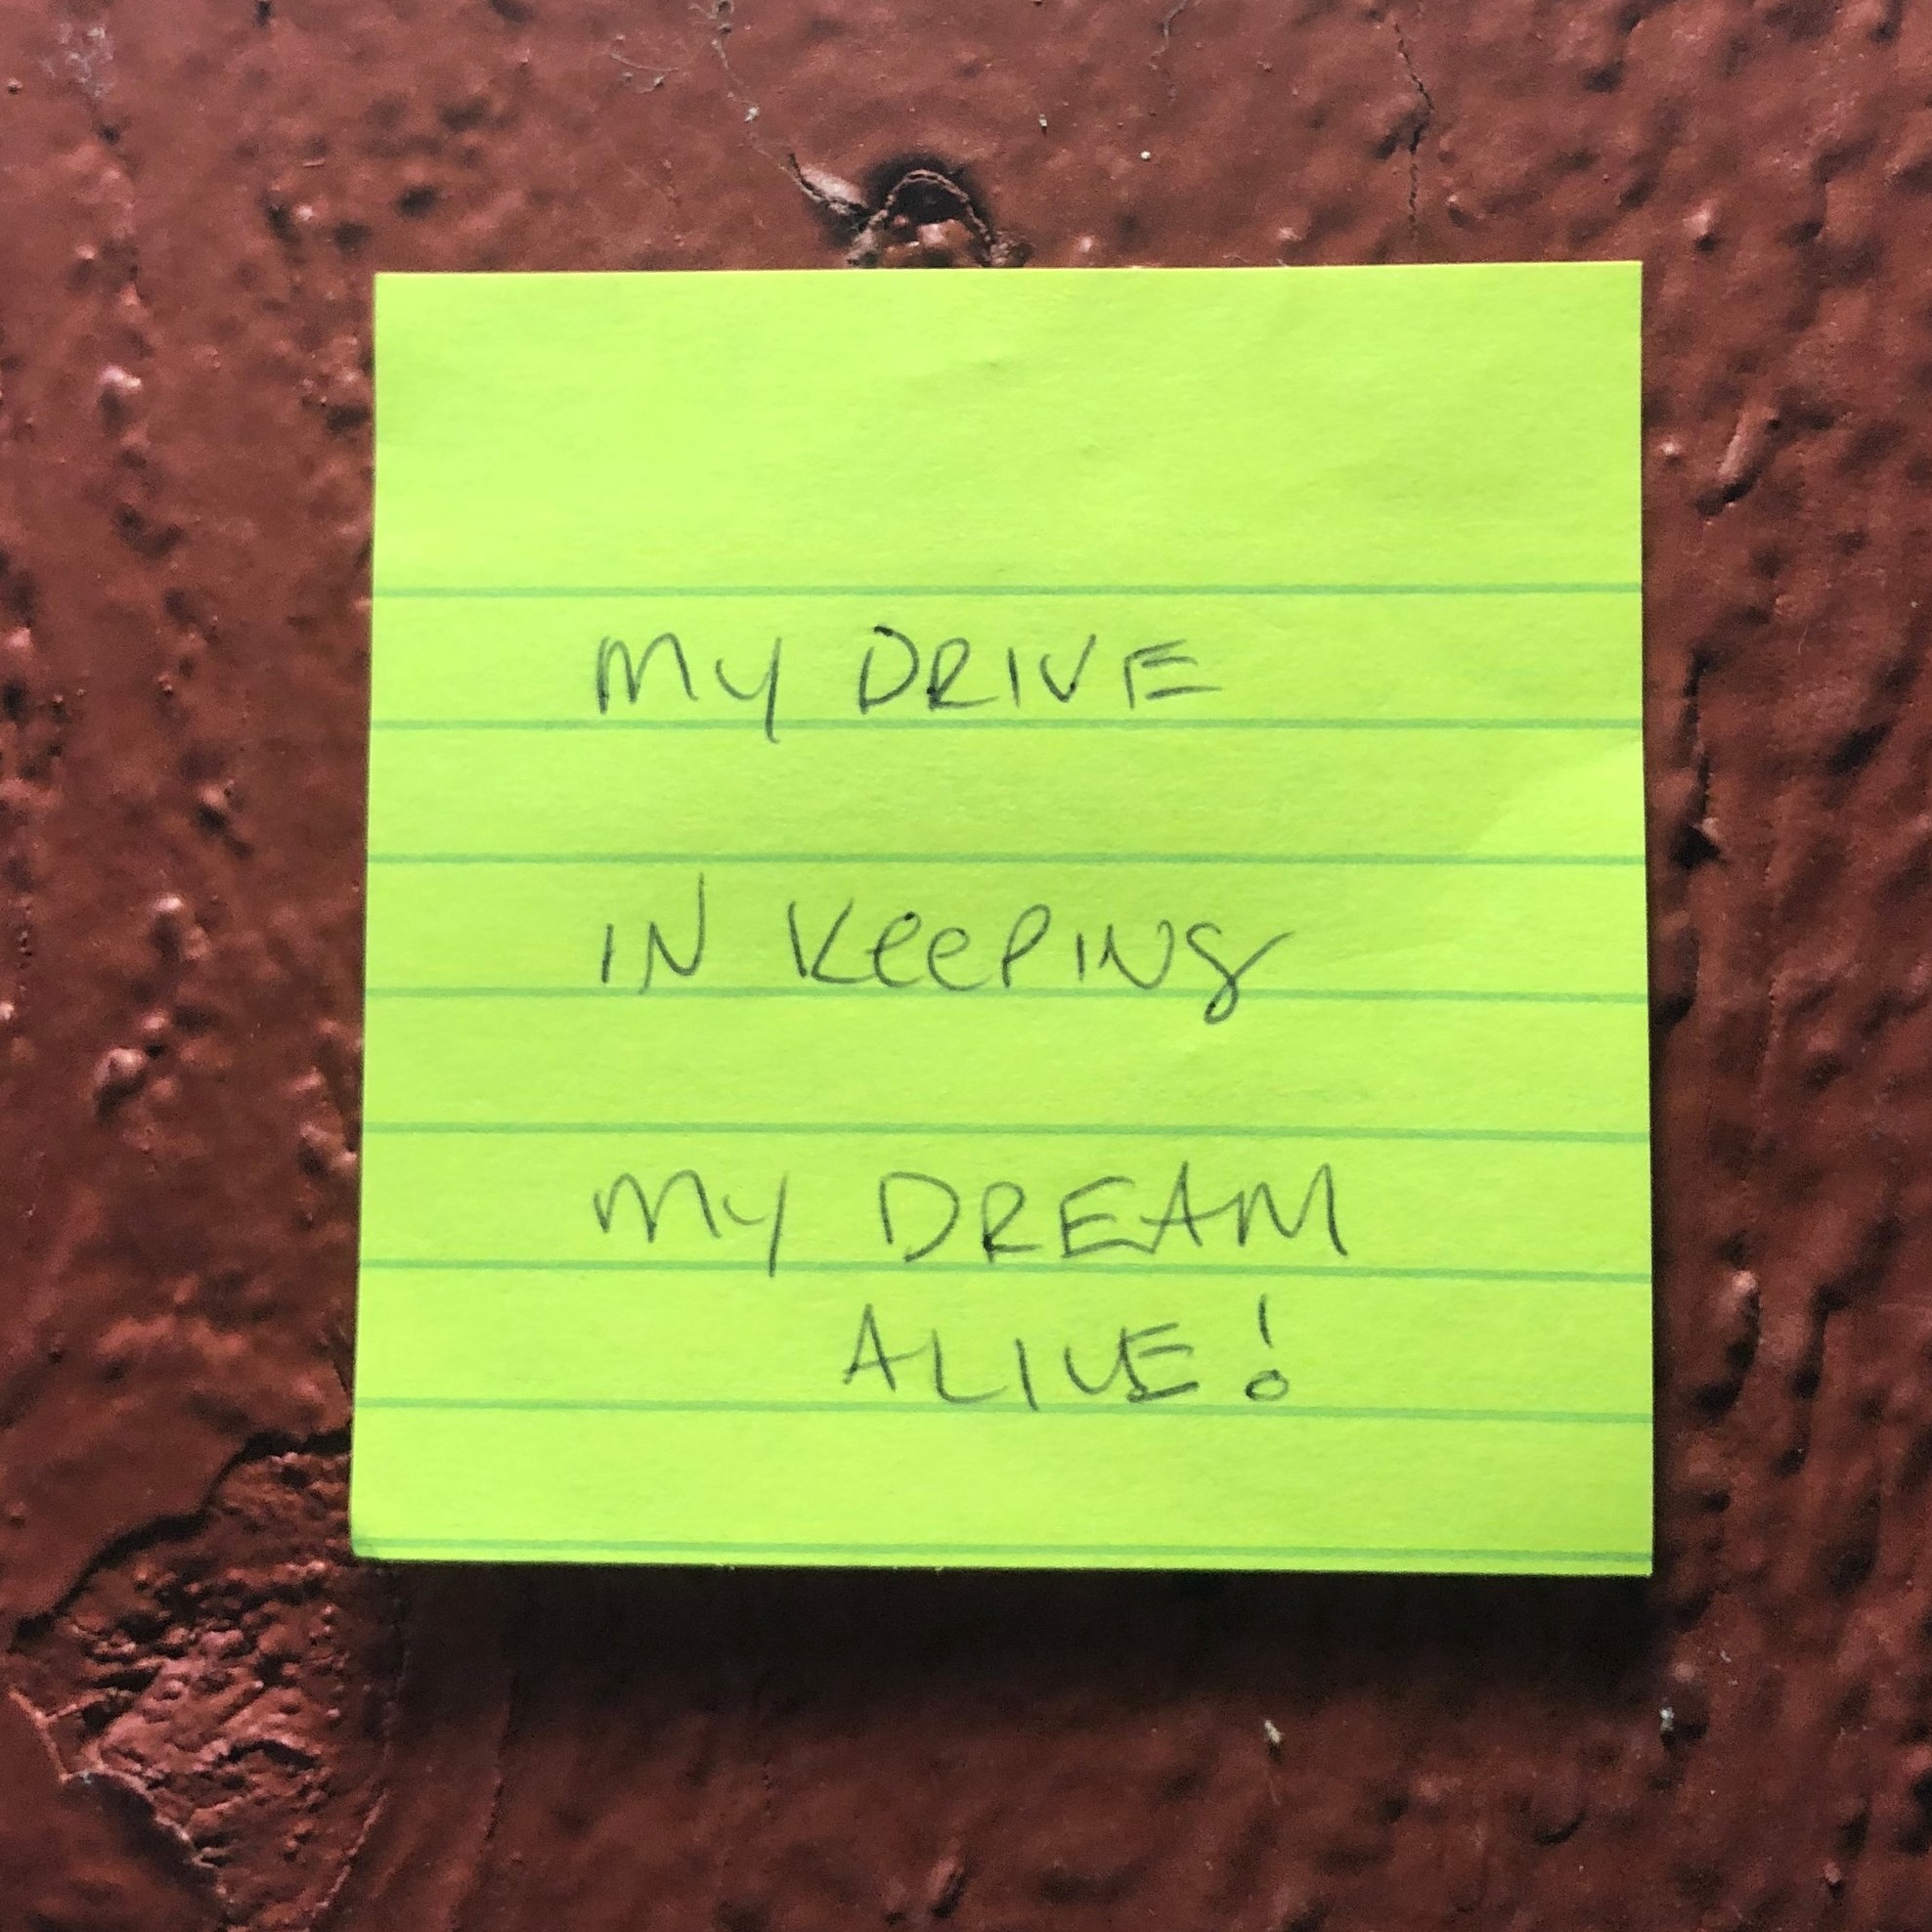 MY DRIVE
IN KeePING
MY DREAM
ALIVE!